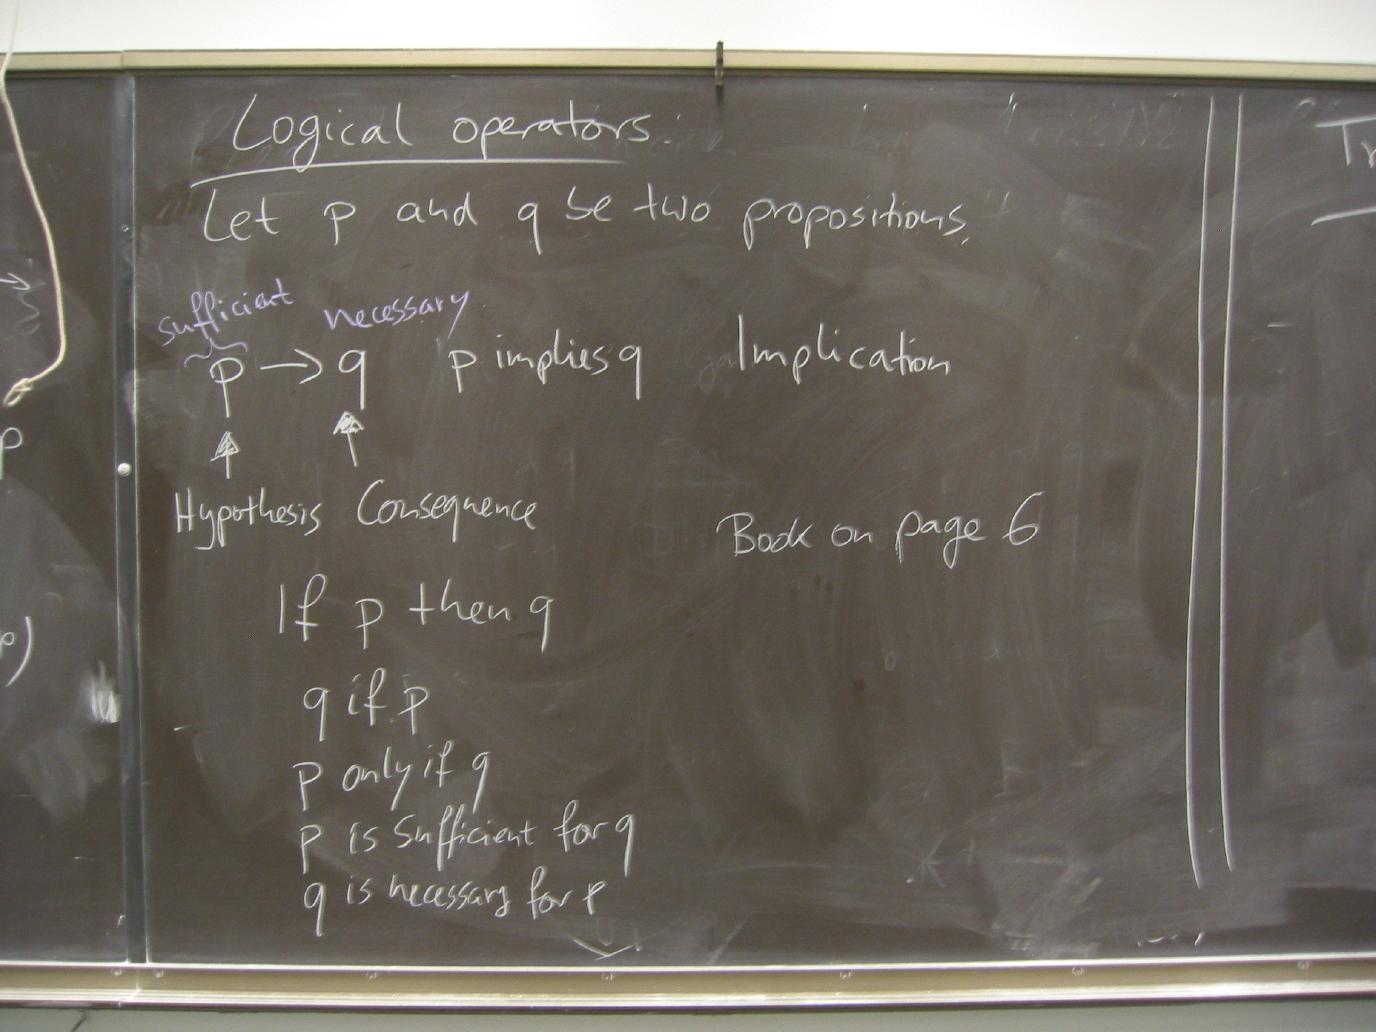 Logical operators.
Let p and q be two propositions.
sufficient necessary
p → q p implies q Implication
Hypothesis Consequence
Book on page 6
If p then q
q if p
p only if q
p is sufficient for q
q is necessary for p